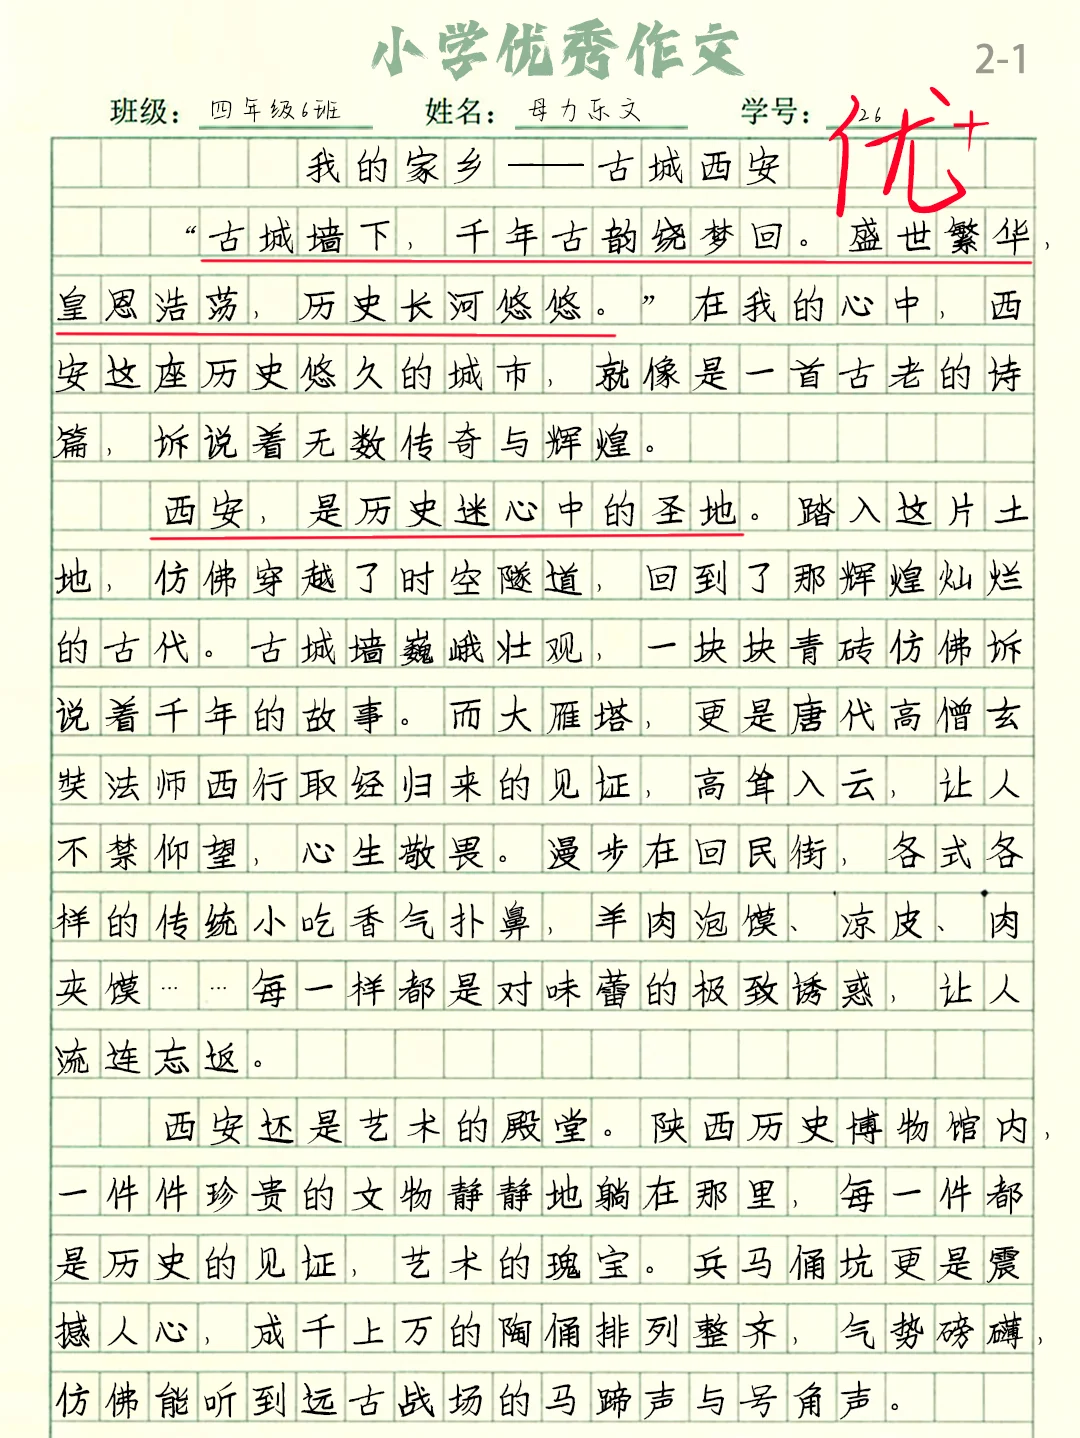 小学优秀作文
2-1
班级：四年级6班 姓名：母力乐文 学号：26
优+
我的家乡——古城西安
“古城墙下，千年古韵绕梦回。盛世繁华，
皇恩浩荡，历史长河悠悠。”在我的心中，西
安这座历史悠久的城市，就像是一首古老的诗
篇，坼说着无数传奇与辉煌。
西安，是历史迷心中的圣地。踏入这片土
地，仿佛穿越了时空隧道，回到了那辉煌灿烂
的古代。古城墙巍峨壮观，一块块青砖仿佛坼
说着千年的故事。而大雁塔，更是唐代高僧玄
奘法师西行取经归来的见证，高耸入云，让人
不禁仰望，心生敬畏。漫步在回民街，各式各
样的传统小吃香气扑鼻，羊肉泡馍、凉皮、肉
夹馍……每一样都是对味蕾的极致诱惑，让人
流连忘返。
西安还是艺术的殿堂。陕西历史博物馆内，
一件件珍贵的文物静静地躺在那里，每一件都
是历史的见证，艺术的瑰宝。兵马俑坑更是震
撼人心，成千上万的陶俑排列整齐，气势磅礴，
仿佛能听到远古战场的马蹄声与号角声。